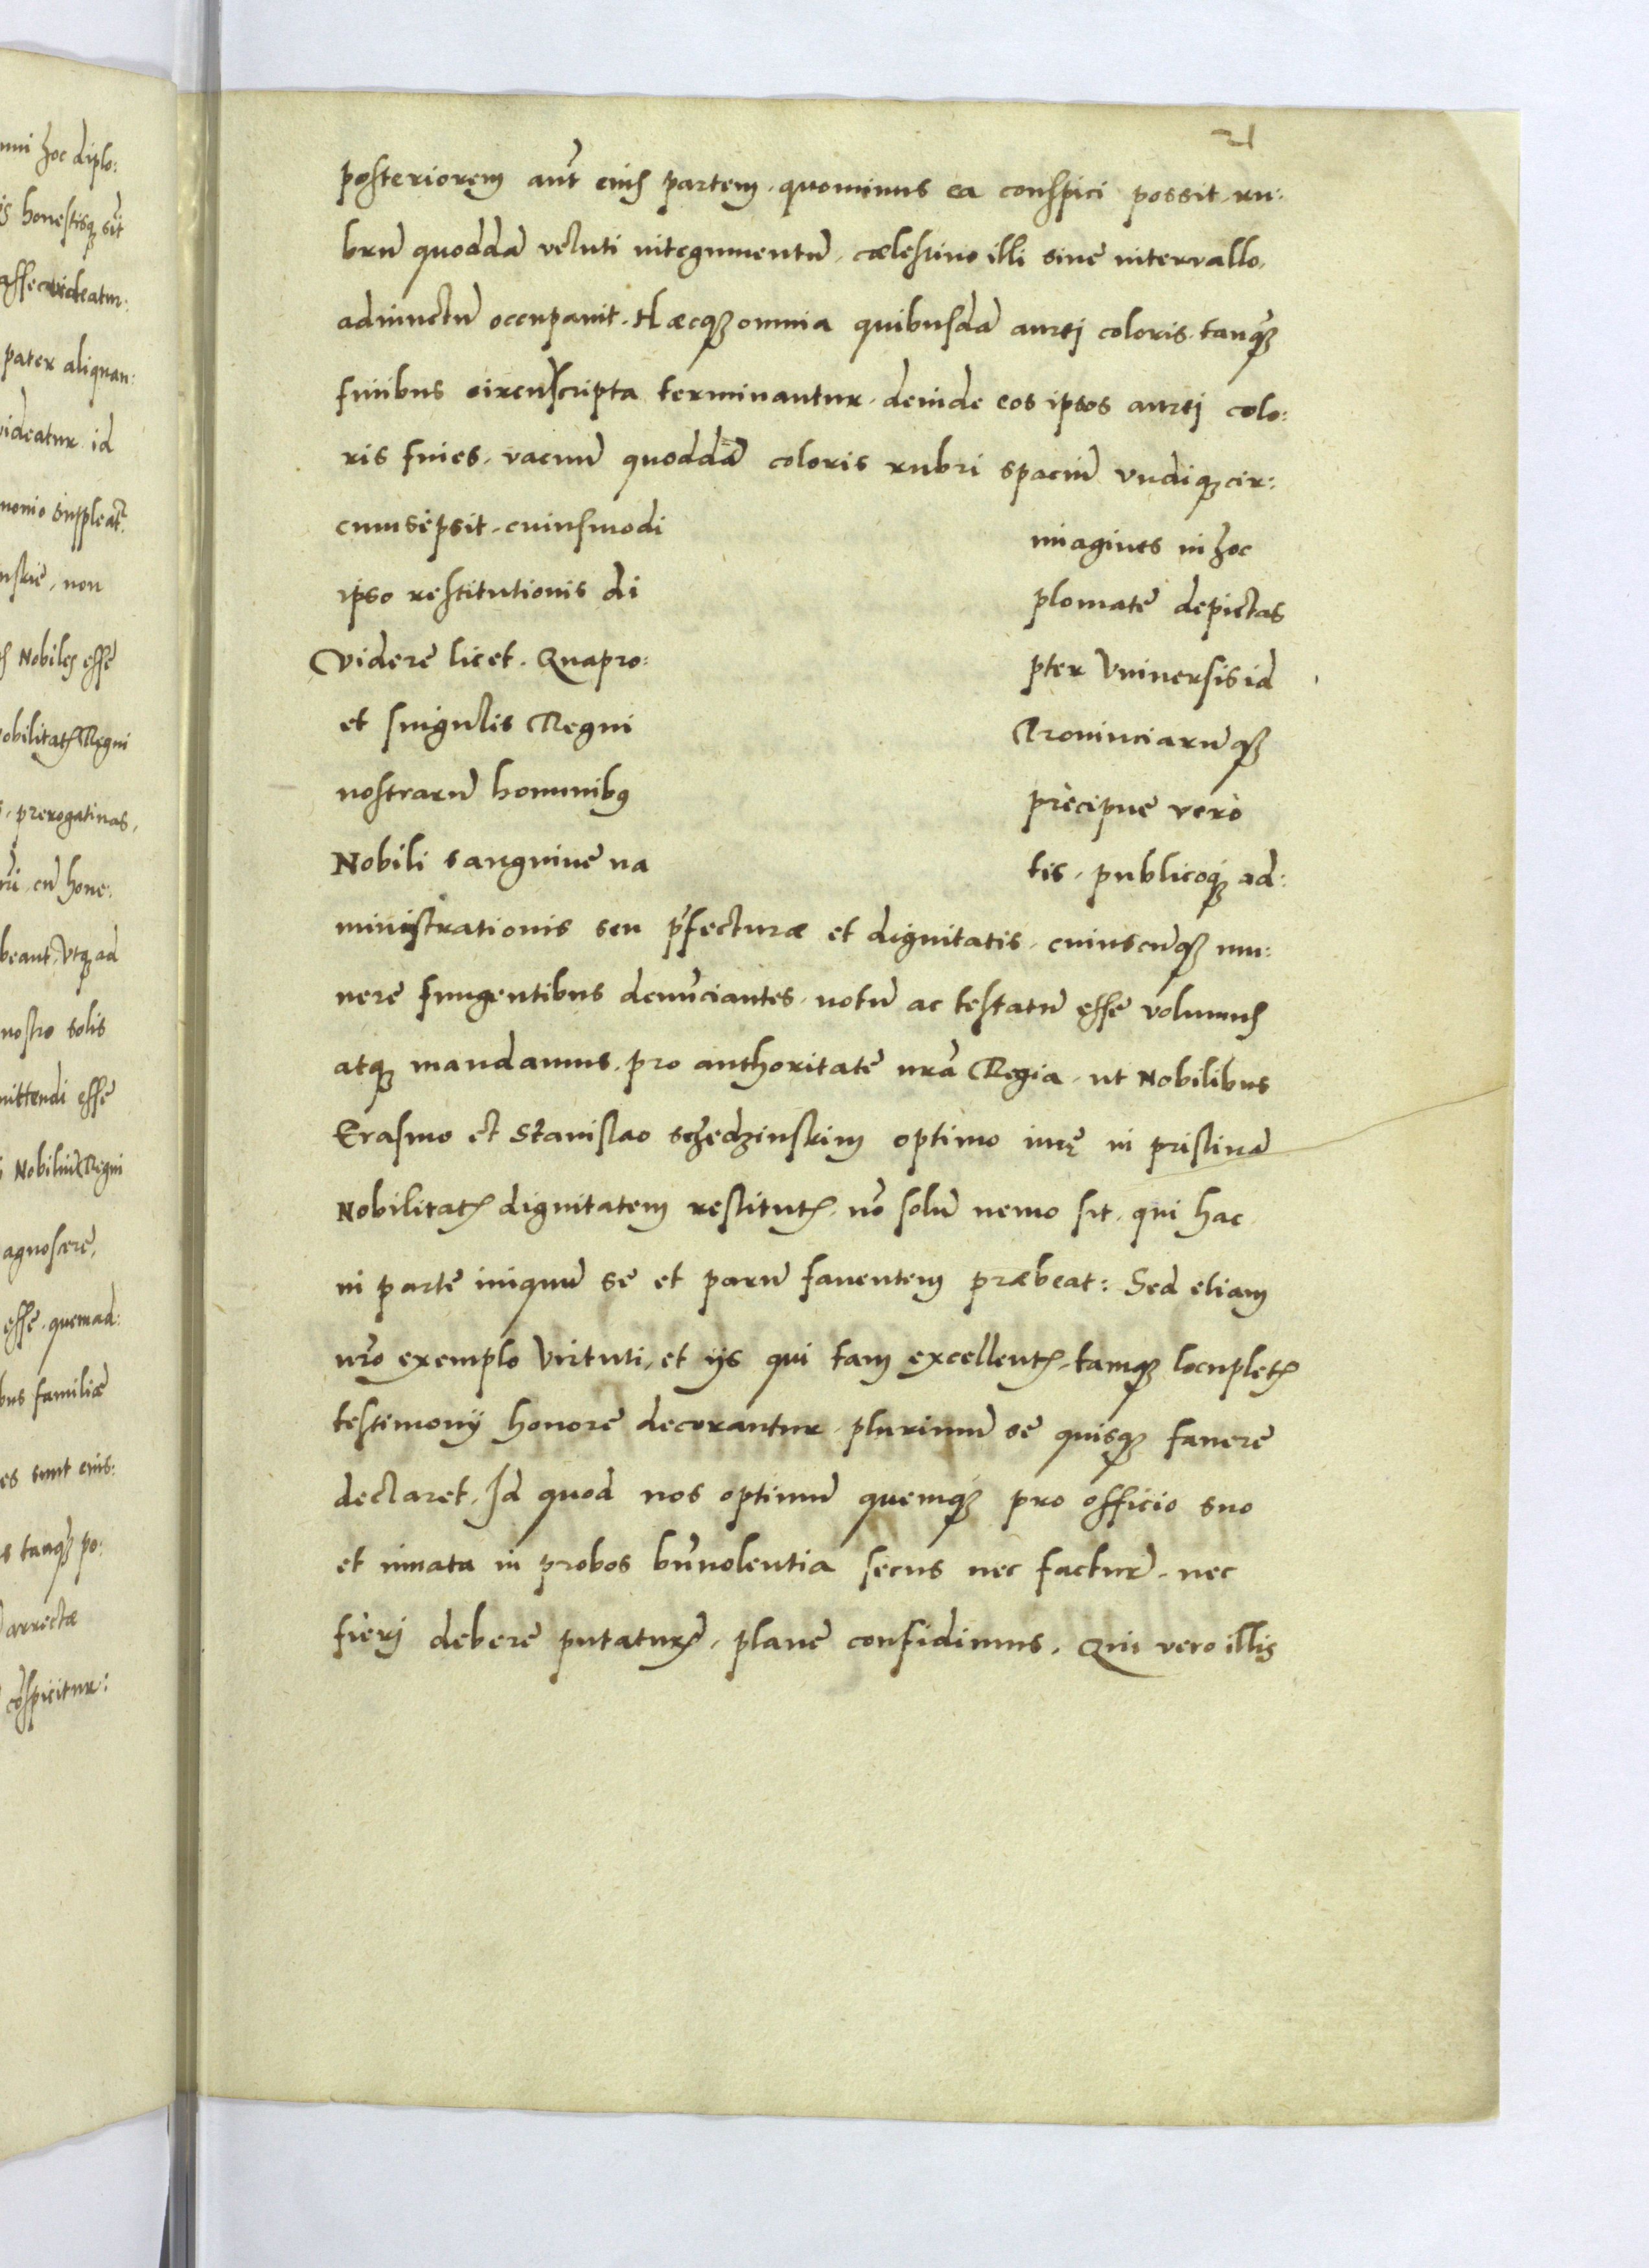 posteriorem aut̃ eius partem, quominus ea conspici possit, ru:
brũ quoddã veluti integumentũ, cælestino illi sine intervallo,
adiunctũ occupavit. Hæcq̃ omnia quibusdã aurej coloris, tanq̃
finibus circũscripta terminantur, deinde eos ipsos aurej colo:
ris fines, vacuũ quoddã coloris rubri spaciũ undiq̃ cir:
cumsepsit, cuiusmodi imagines in hoc
ipso restitutionis di plomate depictas
Videre licet. Quapro: pter Vniversis id
et singulis Regni Provinciarũq̃
nostrarũ hominibus precipue vero
Nobili sanguine na tis, publicoq̃ ad:
ministrationis seu p̃fecturæ et dignitatis, cuiuscũq̃ mu:
nere fungentibus denũciantes, notũ ac testatũ esse volumus
atq̃ mandamus, pro authoritate nrã Regia, ut Nobilibus
Erasmo et Stanislao schedzinskim optimo iure in pristinã
Nobilitatis dignitatem restitutis, nõ solũ nemo sit, qui hac
in parte iniquũ se et parũ faventem præbeat: Sed etiam
nrõ exemplo Virtuti, et ijs qui tam excellentis, tamq̃ locupletis
testimonij honore decorantur, plurimũ se quisq̃ favere
declaret. Id quod nos optimũ quemq̃ pro officio suo
et innata in probos bñvolentia secus nec facturũ, nec
fierj debere putaturũ, plane confidimus. Qui vero illis
mni hoc diplo:
is honestisq̃ sit
videatur:
pater aliquan:
videatur id
monio suppleat̃
nskie, non
Nobiles esse
obilitatis Regni
prerogativas,
cũ hone:
beant, Vtq̃ ad
nostro solis
mittendi esse
Nobiliũ Regni
agnoscere,
esse, quemad:
bus familiæ
es sunt eius:
s tanq̃ po:
arrectæ
cõspicitur: